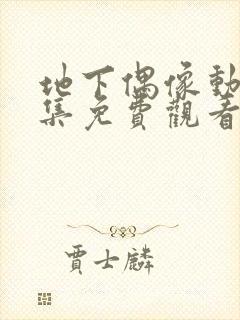 地下偶像動
集免費觀看
賈士麟